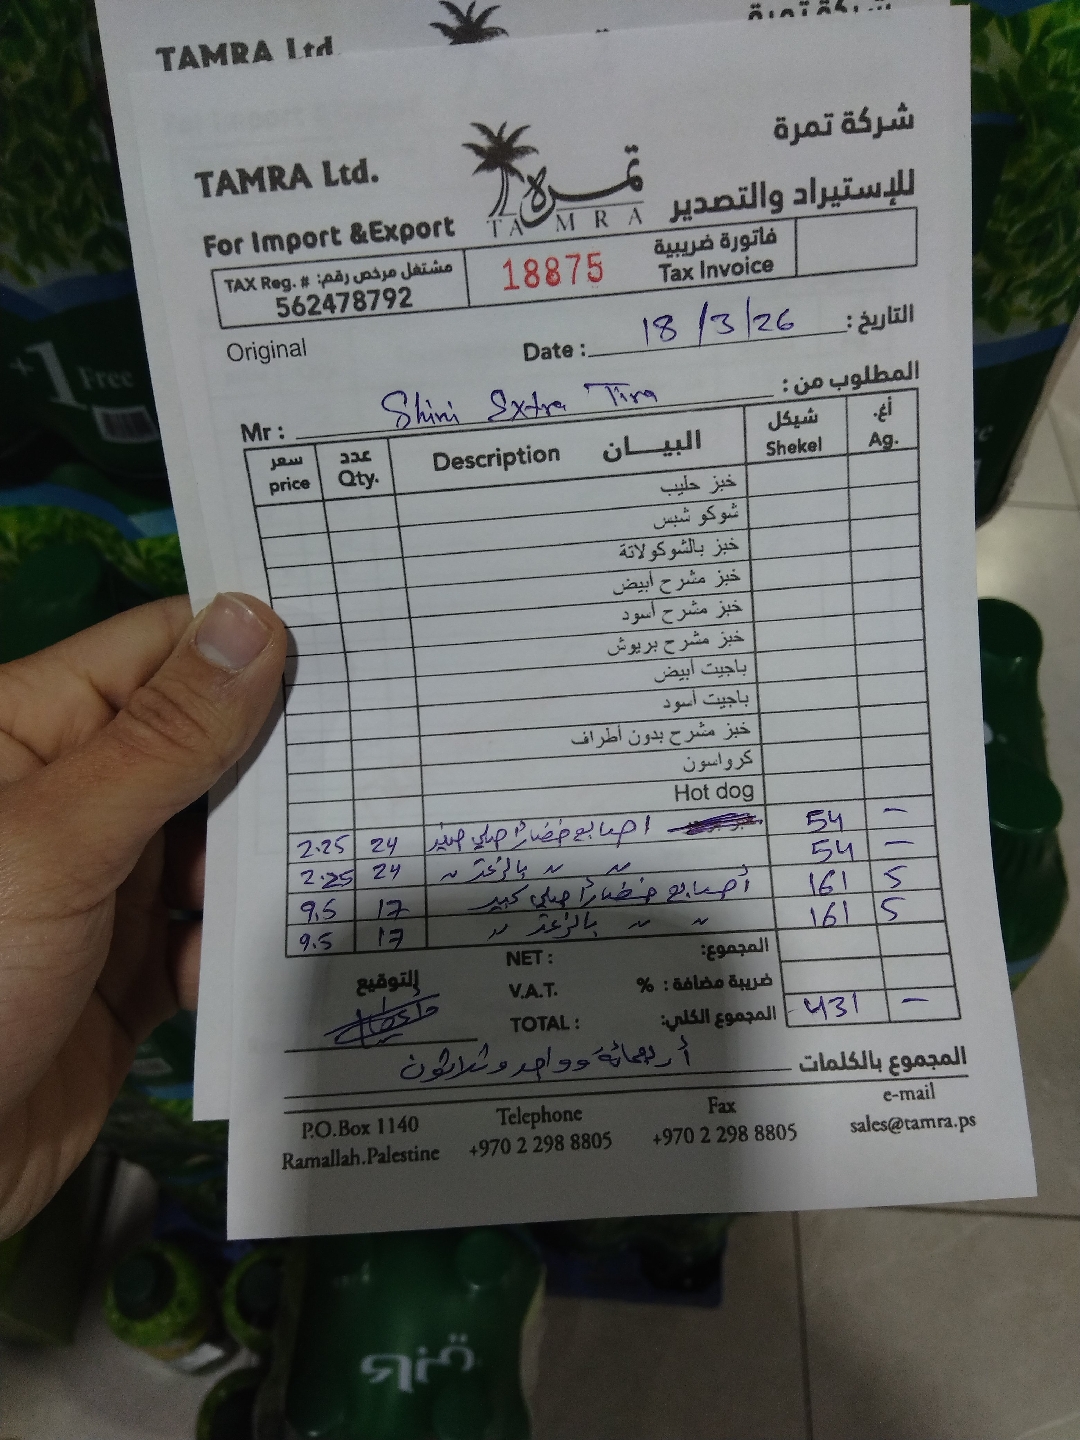 TAMRA Ltd.
شركة تمرة
TAMRA Ltd.
شركة تمرة
تمرة
TAMRA
For Import &Export
للإستيراد والتصدير
TAX Reg. # مشتغل مرخص رقم:
562478792
18875
فاتورة ضريبية
Tax Invoice
Original
Date : 18/3/26 التاريخ :
المطلوب من :
Mr : Shini Extra Tira
سعر price عدد Qty. Description البيـــان شيكل Shekel أغ. Ag.
خبز حليب
شوكو شبس
خبز بالشوكولاتة
خبز مشرح أبيض
خبز مشرح أسود
خبز مشرح بريوش
باجيت أبيض
باجيت أسود
خبز مشرح بدون أطراف
كرواسون
Hot dog
2.25 24 اصابع خضار أصلي صغير 54 —
2.25 24 〃 〃 بالزعتر 〃 54 —
9.5 17 أصابع خضار أصلي كبير 161 5
9.5 17 〃 〃 بالزعتر 〃 161 5
NET : المجموع:
التوقيع
V.A.T. % ضريبة مضافة :
TOTAL : المجموع الكلي: 431 —
المجموع بالكلمات أربعمائة وواحد وثلاثون
P.O.Box 1140
Ramallah.Palestine
Telephone
+970 2 298 8805
Fax
+970 2 298 8805
e-mail
sales@tamra.ps
+1 Free